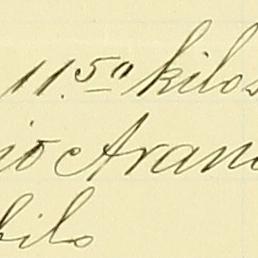 11.50 kilos
io Aran
kilo